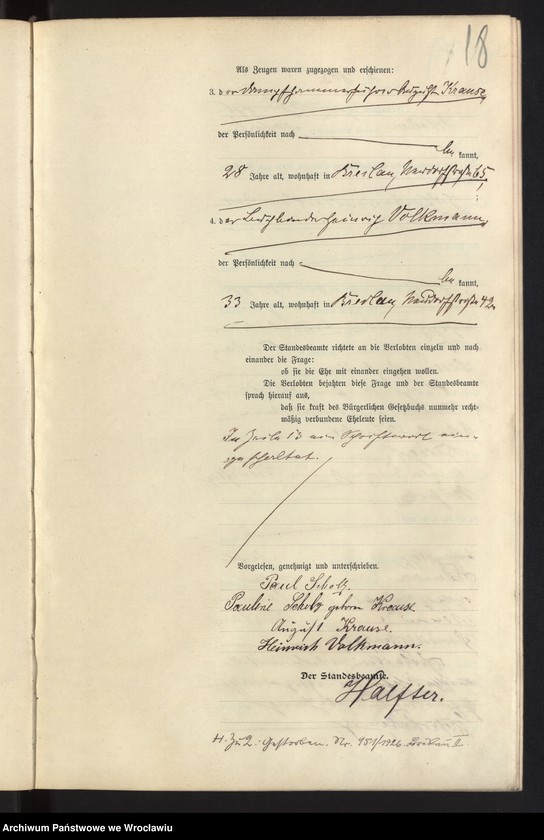 18
Als Zeugen waren zugezogen und erschienen:
3. der Dampfhammerführer August Krause,
der Persönlichkeit nach
be kannt,
28 Jahre alt, wohnhaft in Breslau, Neudorfstraße 65,
;
4. der Heinrich Volkmann,
der Persönlichkeit nach
be kannt,
33 Jahre alt, wohnhaft in Breslau, Neudorfstraße 42.
Der Standesbeamte richtete an die Verlobten einzeln und nach
einander die Frage:
ob sie die Ehe mit einander eingehen wollen.
Die Verlobten bejahten diese Frage und der Standesbeamte
sprach hierauf aus,
daß sie kraft des Bürgerlichen Gesetzbuchs nunmehr recht-
mäßig verbundene Eheleute seien.
In Zeile 13 ein Schriftwort ein-
geschaltet.
Vorgelesen, genehmigt und unterschrieben.
Paul Scholz
Pauline Scholz geborne Krause
August Krause.
Heinrich Volkmann.
Der Standesbeamte.
Halfter.
H. Zu 2: Gestorben. Nr. 951/1926 Breslau II.
Archiwum Państwowe we Wrocławiu